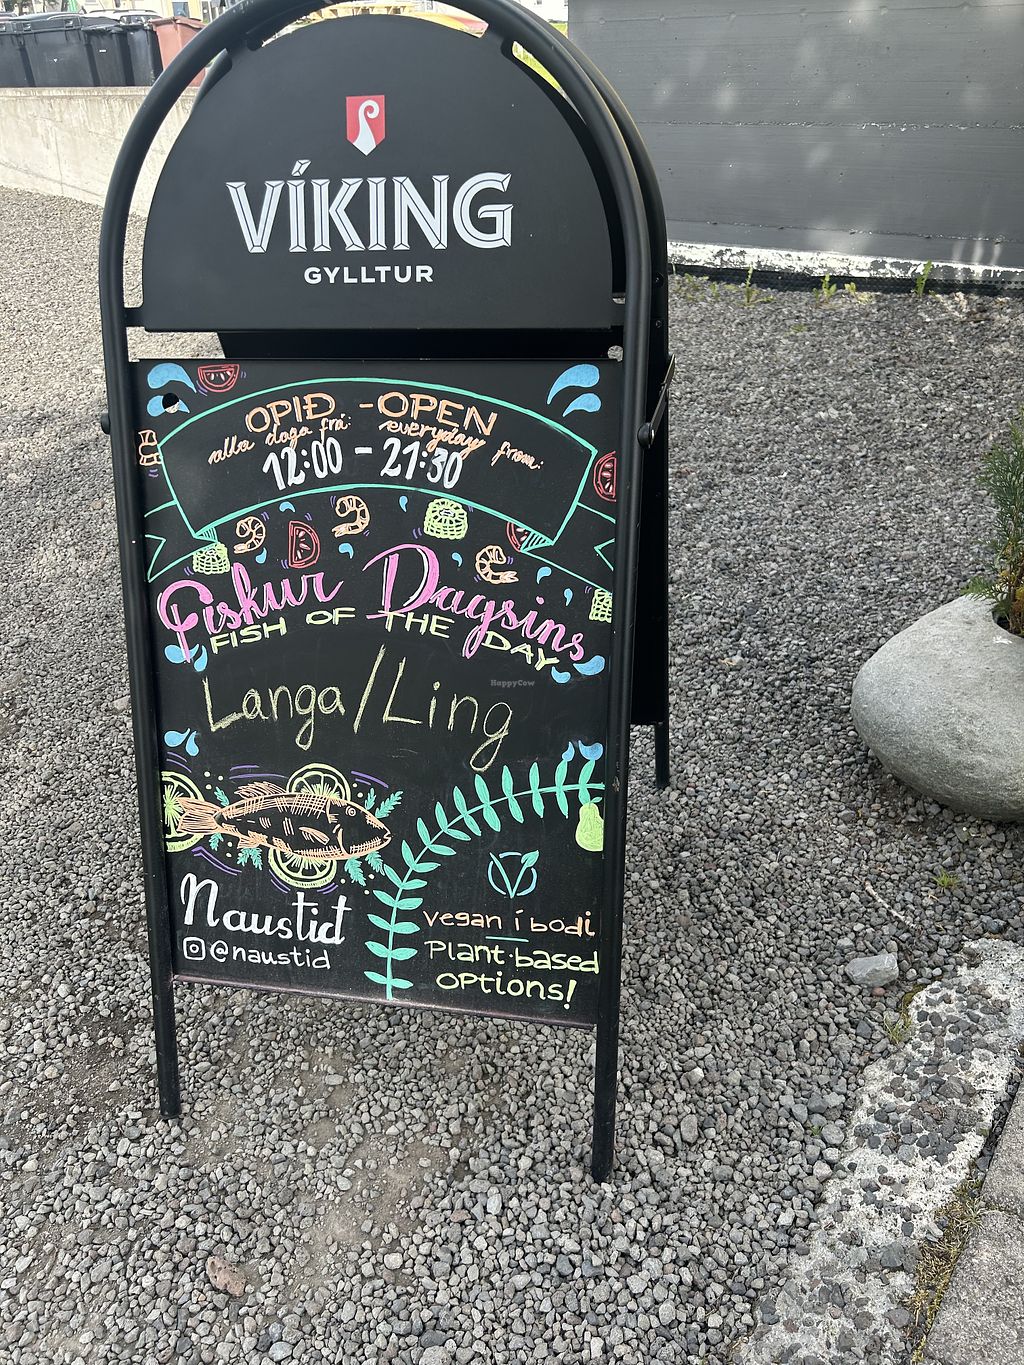 VÍKING
GYLLTUR
OPIÐ - OPEN
alla daga frá: everyday from:
12:00 - 21:30
Fiskur Dagsins
FISH OF THE DAY
Langa/Ling
HappyCow
Naustid
@naustid
Vegan í bodi
Plant-based
options!